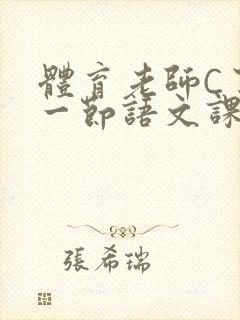 體育老師C
一節語文課
張希瑞